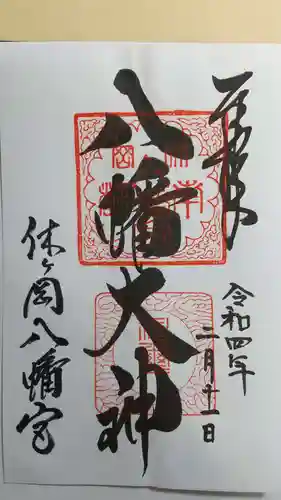 奉拝
八幡大神
令和四年
二月十一日
休ヶ岡八幡宮